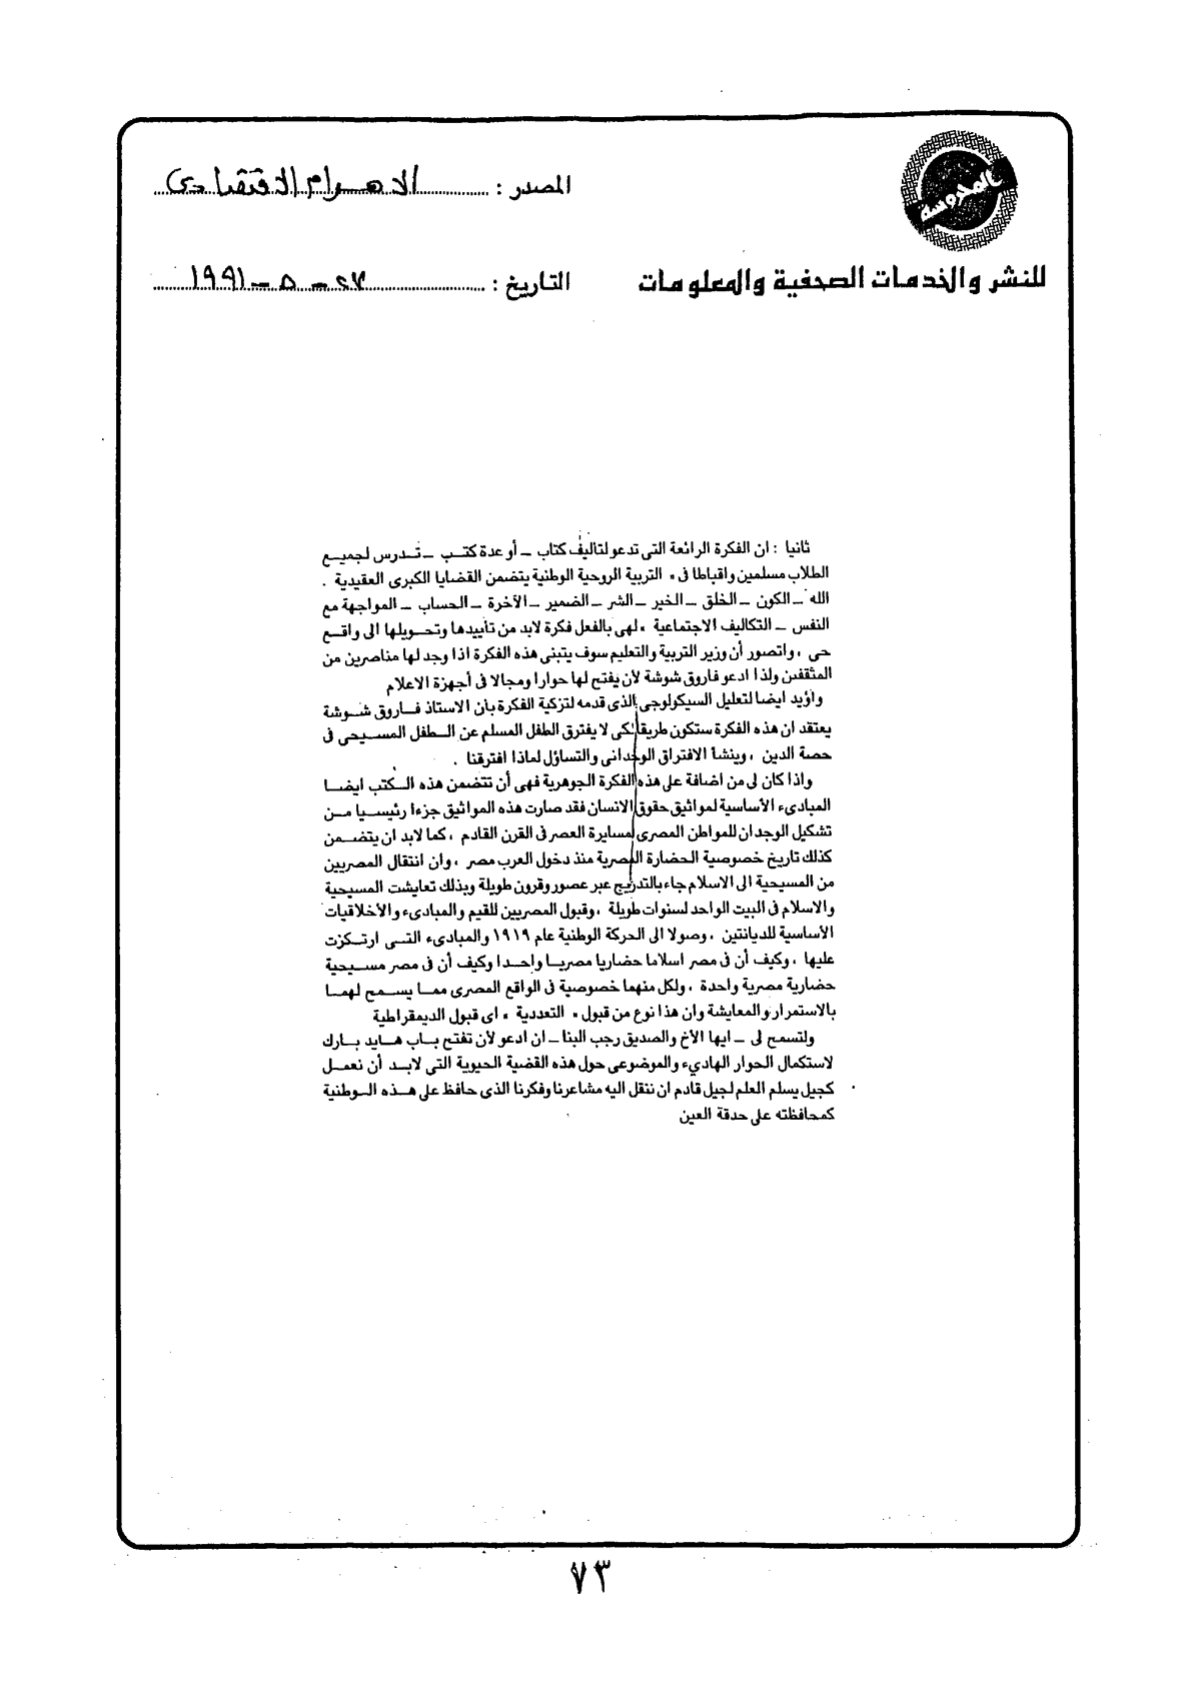 المحروسة
المصدر : الاهرام الاقتصادى
للنشر والخدمات الصحفية والمعلومات
التاريخ : ٢٧ - ٥ - ١٩٩١
ثانيا : ان الفكرة الرائعة التى تدعو لتاليف كتاب ــ أو عدة كتـب ــ تـدرس لجميـع
الطلاب مسلمين واقباطا فى « التربية الروحية الوطنية يتضمن القضايا الكبرى العقيدية .
الله ــ الكون ــ الخلق ــ الخير ــ الشر ــ الضمير ــ الآخرة ــ الحساب ــ المواجهة مع
النفس ــ التكاليف الاجتماعية » لهى بالفعل فكرة لابد من تأييدها وتحـويلها الى واقـع
حى ، واتصور أن وزير التربية والتعليم سوف يتبنى هذه الفكرة اذا وجد لها مناصرين من
المثقفين ولذا ادعو فاروق شوشة لأن يفتح لها حوارا ومجالا فى أجهزة الاعلام
واؤيد ايضا لتعليل السيكولوجى الذى قدمه لتزكية الفكرة بأن الاستاذ فـاروق شـوشة
يعتقد ان هذه الفكرة ستكون طريقا لكى لا يفترق الطفل المسلم عن الـطفل المسـيحى فى
حصة الدين ، وينشأ الافتراق الوجدانى والتساؤل لماذا افترقنا .
واذا كان لى من اضافة على هذه الفكرة الجوهرية فهى أن تتضمن هذه الـكتب ايضـا
المبادىء الأساسية لمواثيق حقوق الانسان فقد صارت هذه المواثيق جزءا رئيسـيا مـن
تشكيل الوجدان للمواطن المصرى لمسايرة العصر فى القرن القادم ، كما لابد ان يتضـمن
كذلك تاريخ خصوصية الحضارة المصرية منذ دخول العرب مصر ، وان انتقال المصريين
من المسيحية الى الاسلام جاء بالتدريج عبر عصور وقرون طويلة وبذلك تعايشت المسيحية
والاسلام فى البيت الواحد لسنوات طويلة ، وقبول المصريين للقيم والمبادىء والأخلاقيات
الأساسية للديانتين ، وصولا الى الحركة الوطنية عام ١٩١٩ والمبادىء التـى ارتـكزت
عليها ، وكيف أن فى مصر اسلاما حضاريا مصريـا واحـدا وكيف أن فى مصر مسـيحية
حضارية مصرية واحدة ، ولكل منهما خصوصية فى الواقع المصرى ممـا يسـمح لهمـا
بالاستمرار والمعايشة وان هذا نوع من قبول « التعددية » اى قبول الديمقراطية
ولتسمح لى ــ ايها الأخ والصديق رجب البنا ــ ان ادعو لأن تفتح بـاب هـايد بـارك
لاستكمال الحوار الهادىء والموضوعى حول هذه القضية الحيوية التى لابـد أن نعمـل
كجيل يسلم العلم لجيل قادم ان ننقل اليه مشاعرنا وفكرنا الذى حافظ على هـذه الـوطنية
كمحافظته على حدقة العين
٧٣